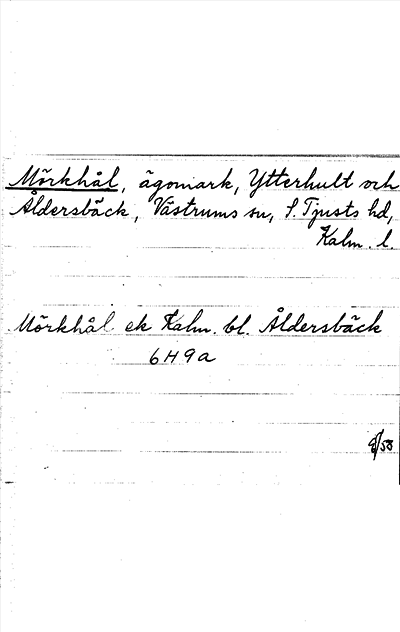 Mörkhål, ägomark, Ytterhult och
Åldersbäck, Västrums sn, S. Tjusts hd,
Kalm. l.
Mörkhål ek Kalm. bl. Åldersbäck
6H9a
/58